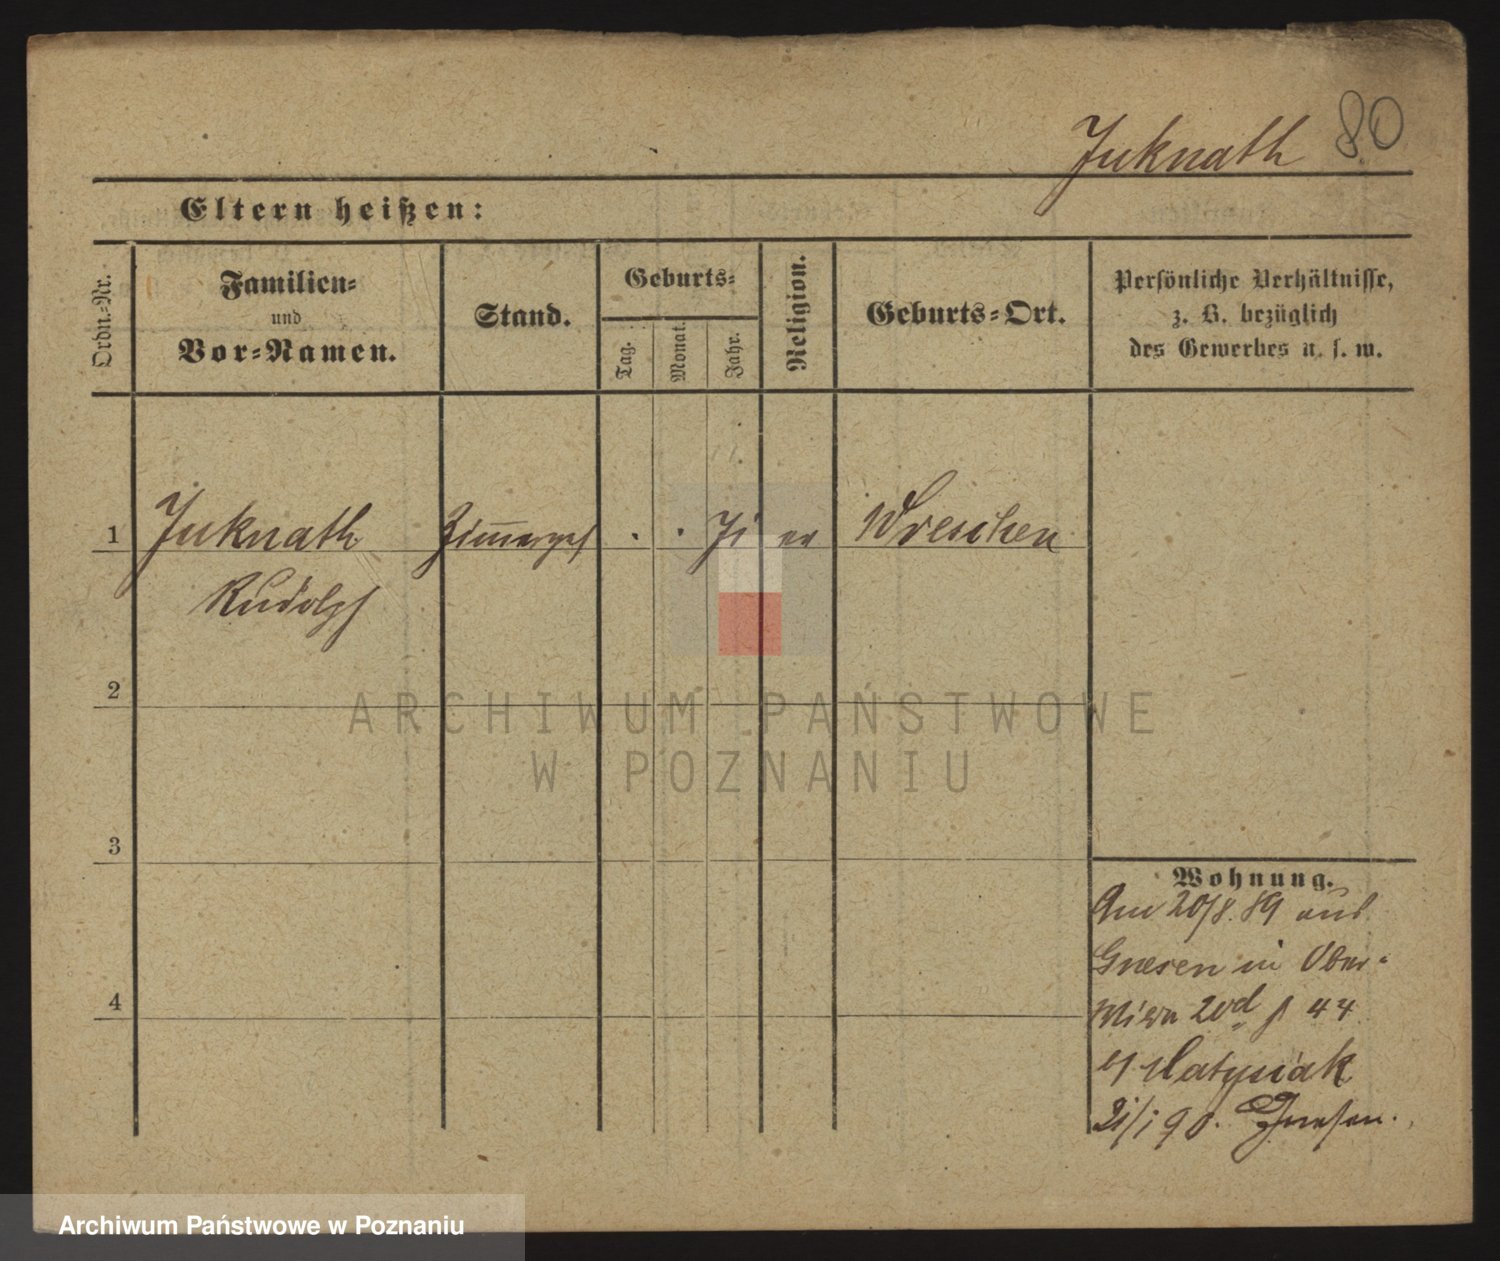 Juknath 80
Eltern heißen:
Ordn.-Nr.
Familien-
und
Vor-Namen.
Stand.
Geburts-
Tag.
Monat.
Jahr.
Religion.
Geburts-Ort.
Persönliche Verhältnisse,
z. B. bezüglich
des Gewerbes u. s. w.
1 Juknath Zimmerges . . ev Wreschen
Rudolph
2
3
4
Wohnung.
Am 20/8. 89 aus
Gnesen in Ober-
44
Matysiak
90. Gnesen.
ARCHIWUM PAŃSTWOWE
W POZNANIU
Archiwum Państwowe w Poznaniu